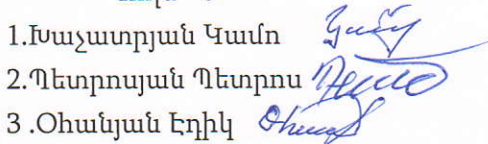 1.Խաչատրյան Կամո
2.Պետրոսյան Պետրոս
3 .Օհանյան Էդիկ